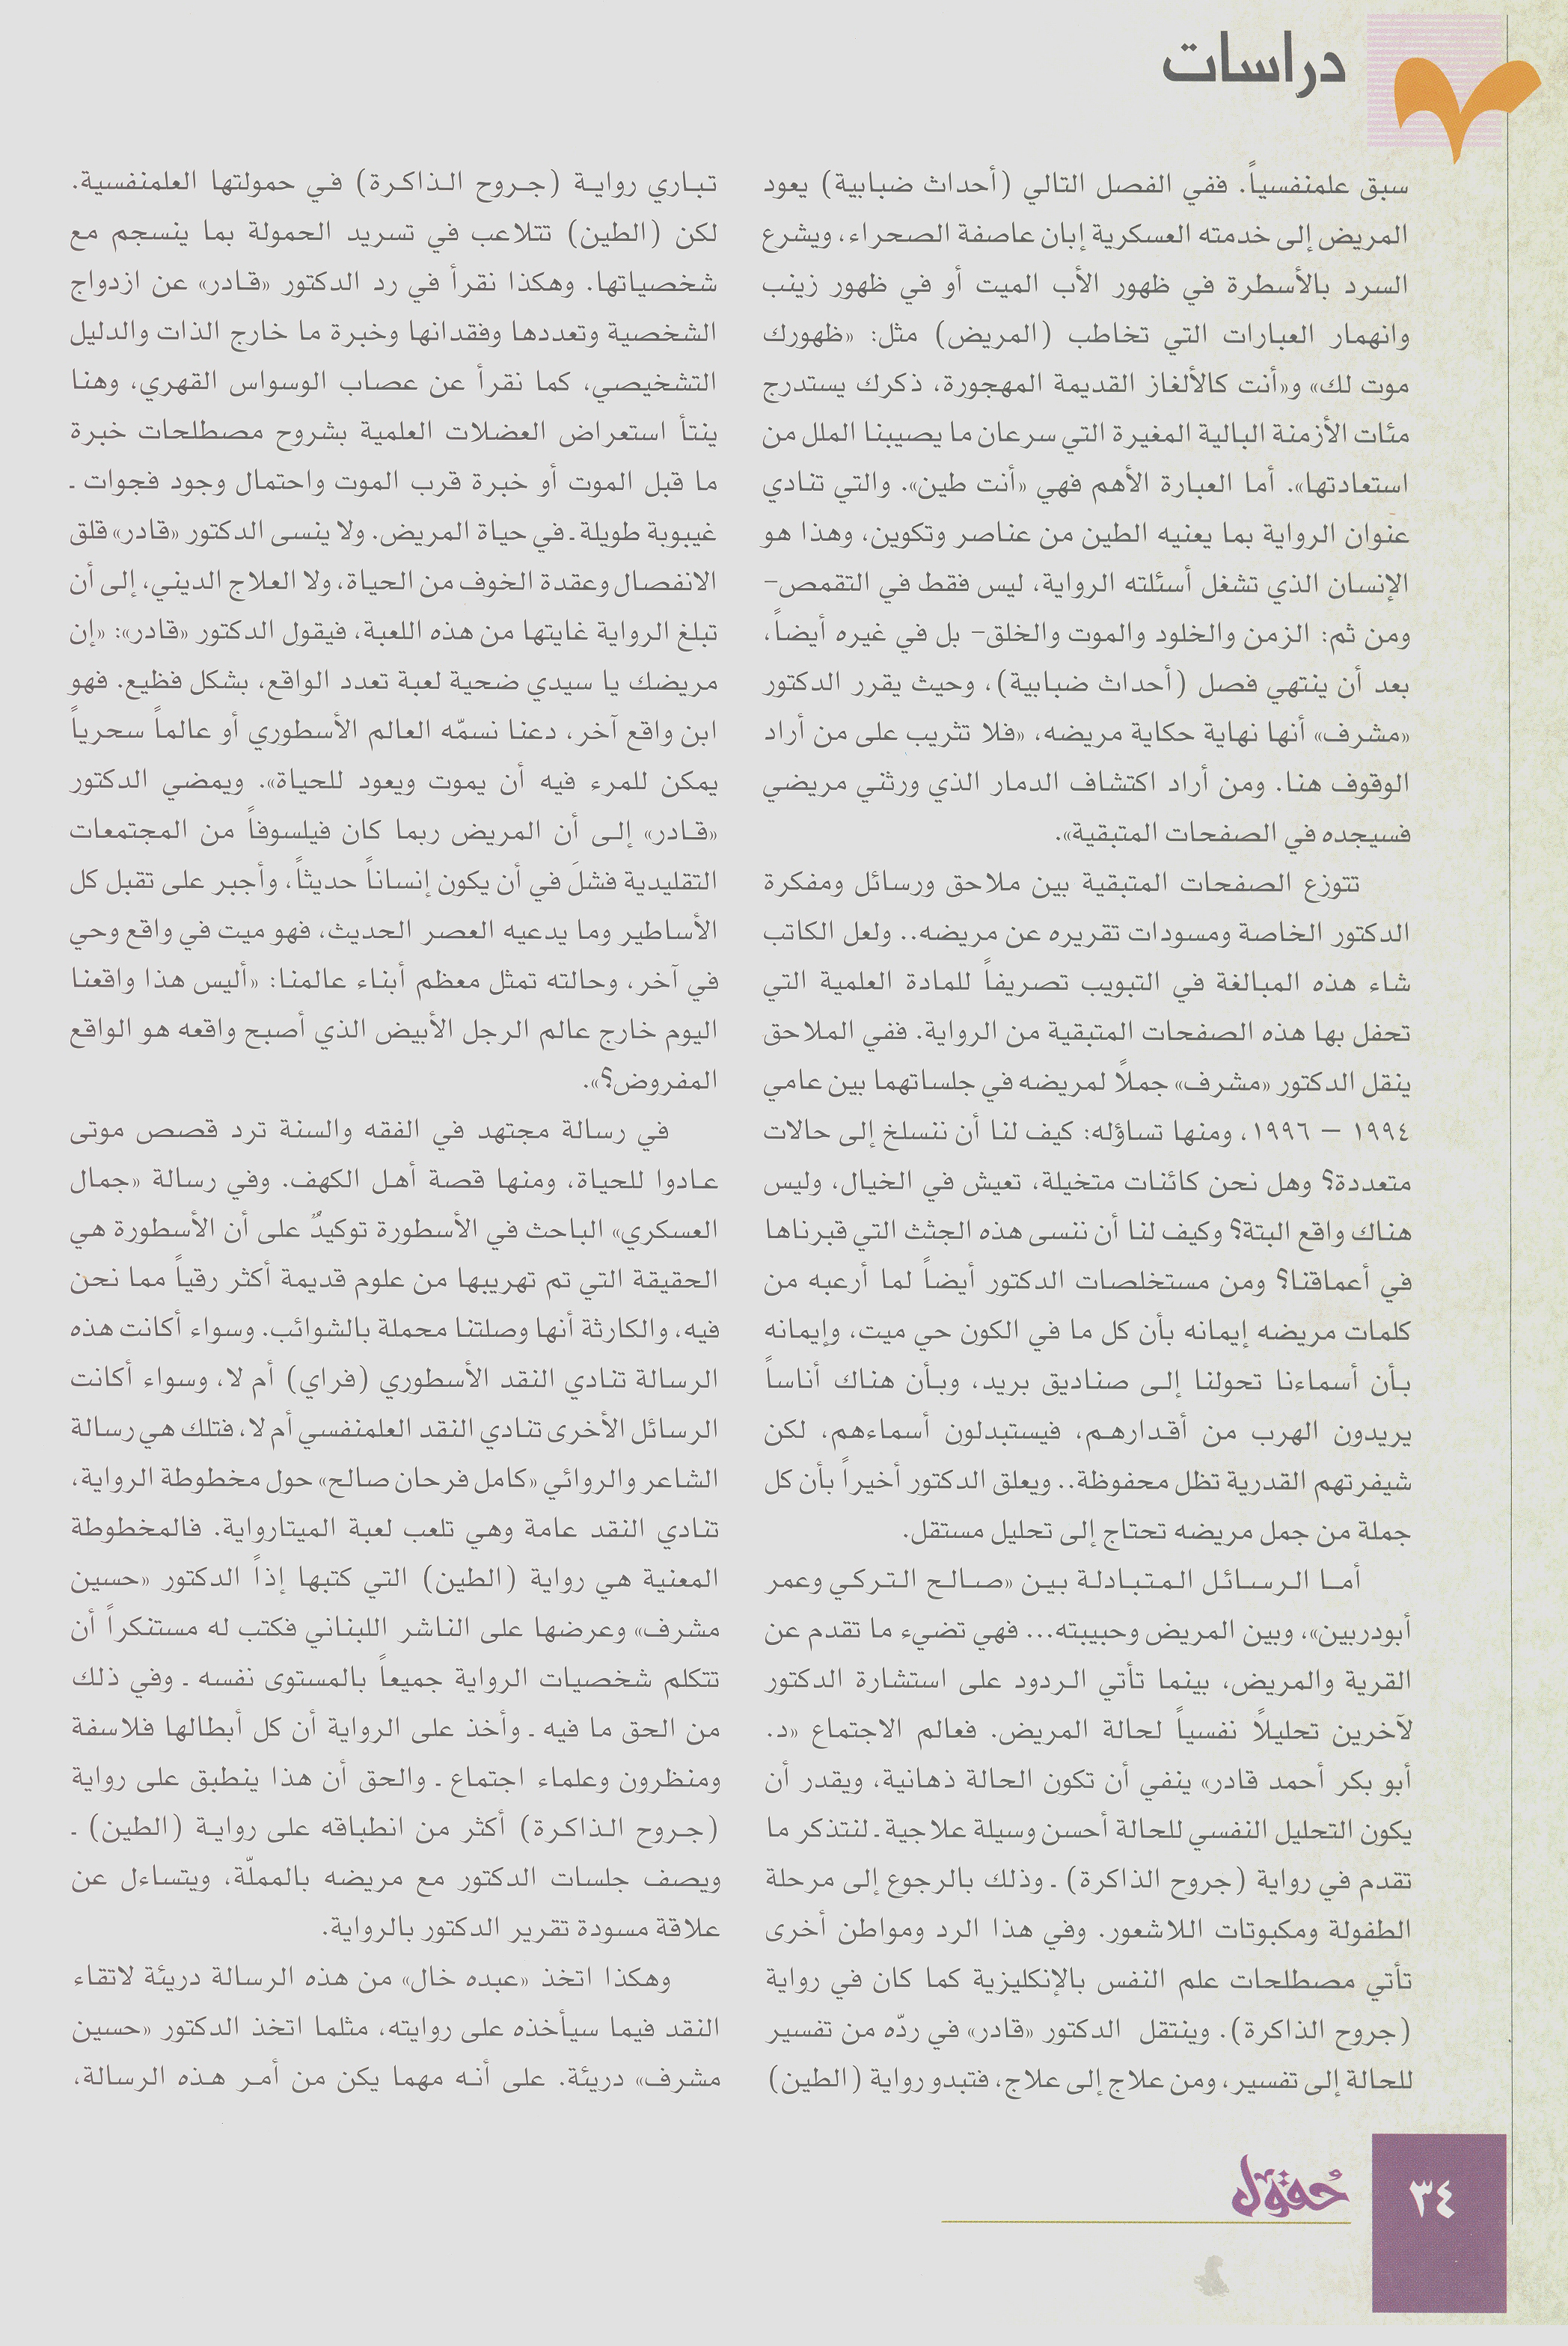 دراسات
سبق علمنفسياً. ففي الفصل التالي (أحداث ضبابية) يعود
المريض إلى خدمته العسكرية إبان عاصفة الصحراء، ويشرع
السرد بالأسطرة في ظهور الأب الميت أو في ظهور زينب
وانهمار العبارات التي تخاطب (المريض) مثل: «ظهورك
موت لك» و«أنت كالألغاز القديمة المهجورة، ذكرك يستدرج
مئات الأزمنة البالية المغيرة التي سرعان ما يصيبنا الملل من
استعادتها». أما العبارة الأهم فهي «أنت طين». والتي تنادي
عنوان الرواية بما يعنيه الطين من عناصر وتكوين، وهذا هو
الإنسان الذي تشغل أسئلته الرواية، ليس فقط في التقمص–
ومن ثم: الزمن والخلود والموت والخلق– بل في غيره أيضاً،
بعد أن ينتهي فصل (أحداث ضبابية)، وحيث يقرر الدكتور
«مشرف» أنها نهاية حكاية مريضه، «فلا تثريب على من أراد
الوقوف هنا. ومن أراد اكتشاف الدمار الذي ورثني مريضي
فسيجده في الصفحات المتبقية».
تتوزع الصفحات المتبقية بين ملاحق ورسائل ومفكرة
الدكتور الخاصة ومسودات تقريره عن مريضه.. ولعل الكاتب
شاء هذه المبالغة في التبويب تصريفاً للمادة العلمية التي
تحفل بها هذه الصفحات المتبقية من الرواية. ففي الملاحق
ينقل الدكتور «مشرف» جملاً لمريضه في جلساتهما بين عامي
١٩٩٤ – ١٩٩٦، ومنها تساؤله: كيف لنا أن ننسلخ إلى حالات
متعددة؟ وهل نحن كائنات متخيلة، تعيش في الخيال، وليس
هناك واقع البتة؟ وكيف لنا أن ننسى هذه الجثث التي قبرناها
في أعماقنا؟ ومن مستخلصات الدكتور أيضاً لما أرعبه من
كلمات مريضه إيمانه بأن كل ما في الكون حي ميت، وإيمانه
بأن أسماءنا تحولنا إلى صناديق بريد، وبأن هناك أناساً
يريدون الهرب من أقدارهم، فيستبدلون أسماءهم، لكن
شيفرتهم القدرية تظل محفوظة.. ويعلق الدكتور أخيراً بأن كل
جملة من جمل مريضه تحتاج إلى تحليل مستقل.
أما الرسائل المتبادلة بين «صالح التركي وعمر
أبودربين»، وبين المريض وحبيبته... فهي تضيء ما تقدم عن
القرية والمريض، بينما تأتي الردود على استشارة الدكتور
لآخرين تحليلاً نفسياً لحالة المريض. فعالم الاجتماع «د.
أبو بكر أحمد قادر» ينفي أن تكون الحالة ذهانية، ويقدر أن
يكون التحليل النفسي للحالة أحسن وسيلة علاجية ـ لنتذكر ما
تقدم في رواية (جروح الذاكرة) ـ وذلك بالرجوع إلى مرحلة
الطفولة ومكبوتات اللاشعور. وفي هذا الرد ومواطن أخرى
تأتي مصطلحات علم النفس بالإنكليزية كما كان في رواية
(جروح الذاكرة). وينتقل الدكتور «قادر» في ردّه من تفسير
للحالة إلى تفسير، ومن علاج إلى علاج، فتبدو رواية (الطين)
تباري رواية (جروح الذاكرة) في حمولتها العلمنفسية.
لكن (الطين) تتلاعب في تسريد الحمولة بما ينسجم مع
شخصياتها. وهكذا نقرأ في رد الدكتور «قادر» عن ازدواج
الشخصية وتعددها وفقدانها وخبرة ما خارج الذات والدليل
التشخيصي، كما نقرأ عن عصاب الوسواس القهري، وهنا
ينتأ استعراض العضلات العلمية بشروح مصطلحات خبرة
ما قبل الموت أو خبرة قرب الموت واحتمال وجود فجوات ـ
غيبوبة طويلة ـ في حياة المريض. ولا ينسى الدكتور «قادر» قلق
الانفصال وعقدة الخوف من الحياة، ولا العلاج الديني، إلى أن
تبلغ الرواية غايتها من هذه اللعبة، فيقول الدكتور «قادر»: «إن
مريضك يا سيدي ضحية لعبة تعدد الواقع، بشكل فظيع. فهو
ابن واقع آخر، دعنا نسمّه العالم الأسطوري أو عالماً سحرياً
يمكن للمرء فيه أن يموت ويعود للحياة». ويمضي الدكتور
«قادر» إلى أن المريض ربما كان فيلسوفاً من المجتمعات
التقليدية فشلَ في أن يكون إنساناً حديثاً، وأجبر على تقبل كل
الأساطير وما يدعيه العصر الحديث، فهو ميت في واقع وحي
في آخر، وحالته تمثل معظم أبناء عالمنا: «أليس هذا واقعنا
اليوم خارج عالم الرجل الأبيض الذي أصبح واقعه هو الواقع
المفروض؟».
في رسالة مجتهد في الفقه والسنة ترد قصص موتى
عادوا للحياة، ومنها قصة أهل الكهف. وفي رسالة «جمال
العسكري» الباحث في الأسطورة توكيدٌ على أن الأسطورة هي
الحقيقة التي تم تهريبها من علوم قديمة أكثر رقياً مما نحن
فيه، والكارثة أنها وصلتنا محملة بالشوائب. وسواء أكانت هذه
الرسالة تنادي النقد الأسطوري (فراي) أم لا، وسواء أكانت
الرسائل الأخرى تنادي النقد العلمنفسي أم لا، فتلك هي رسالة
الشاعر والروائي «كامل فرحان صالح» حول مخطوطة الرواية،
تنادي النقد عامة وهي تلعب لعبة الميتارواية. فالمخطوطة
المعنية هي رواية (الطين) التي كتبها إذاً الدكتور «حسين
مشرف» وعرضها على الناشر اللبناني فكتب له مستنكراً أن
تتكلم شخصيات الرواية جميعاً بالمستوى نفسه ـ وفي ذلك
من الحق ما فيه ـ وأخذ على الرواية أن كل أبطالها فلاسفة
ومنظرون وعلماء اجتماع ـ والحق أن هذا ينطبق على رواية
(جروح الذاكرة) أكثر من انطباقه على رواية (الطين) ـ
ويصف جلسات الدكتور مع مريضه بالمملّة، ويتساءل عن
علاقة مسودة تقرير الدكتور بالرواية.
وهكذا اتخذ «عبده خال» من هذه الرسالة دريئة لاتقاء
النقد فيما سيأخذه على روايته، مثلما اتخذ الدكتور «حسين
مشرف» دريئة. على أنه مهما يكن من أمر هذه الرسالة،
حقول
٣٤